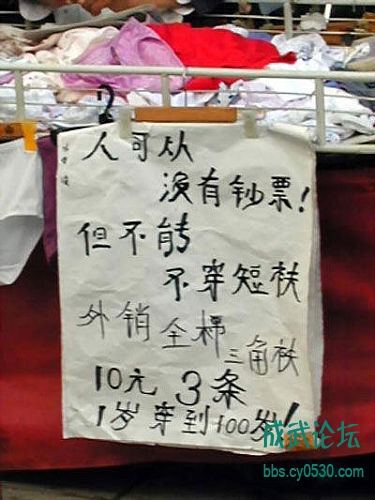 人可从
没有钞票!
但不能
不穿短扶
外销全棉
三角扶
10元 3条
1岁穿到100岁!
成武论坛
bbs.cy0530.com